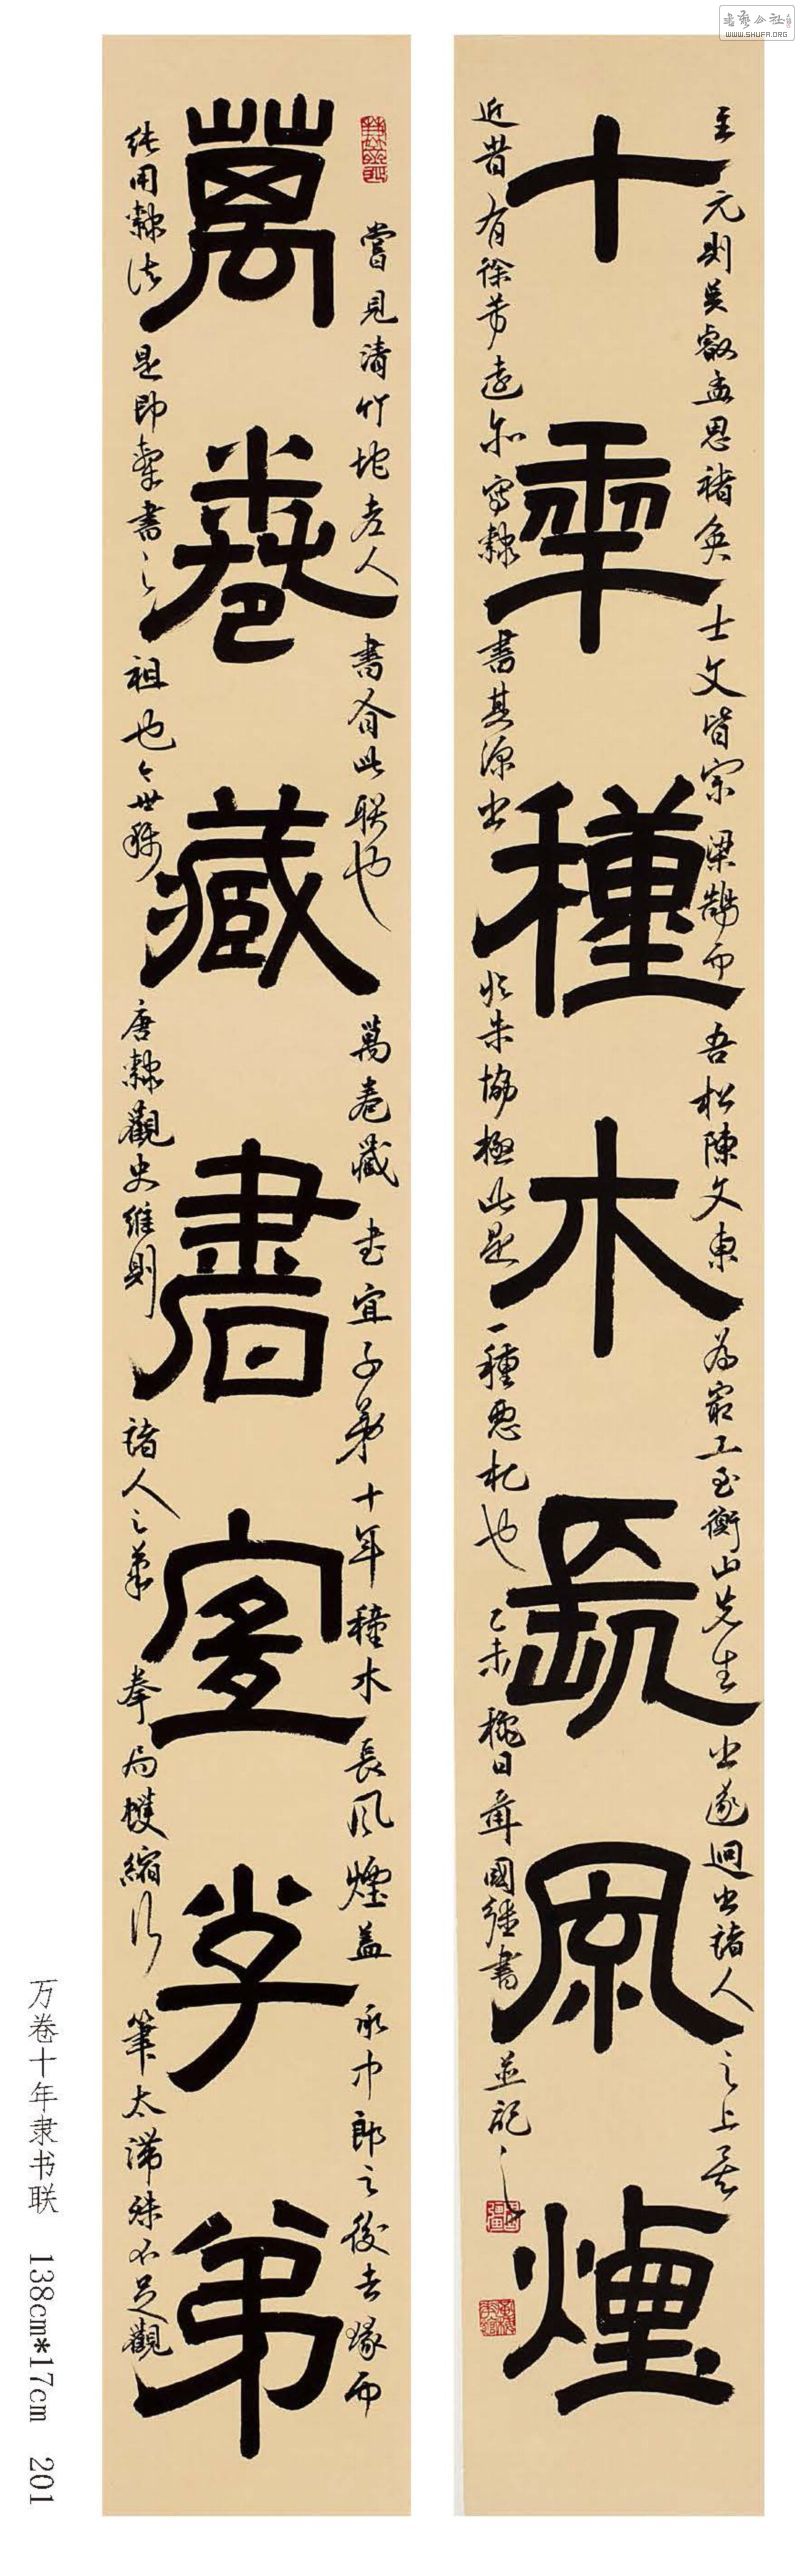 萬卷藏書宜子弟
嘗見清竹垞老人書有此联也萬卷藏書宜子弟十年種木長風煙蓋承中郎之後去而
純用隸法是即書之祖也今世稱唐隸觀史維則諸人之筆拳局蠖縮行筆太滞殊不足觀
十年種木長風煙
至元則吳叡孟思褚奂士文皆宗梁鵠而吾松陳文東為最工至衡山先生出遂迥出諸人之上矣
近昔有徐芳遠亦寫隸書其源出於朱協極此是一種惡札也乙未穐日國強書並記之
万卷十年隶书联 138cm*17cm 201
书艺公社
WWW.SHUFA.ORG